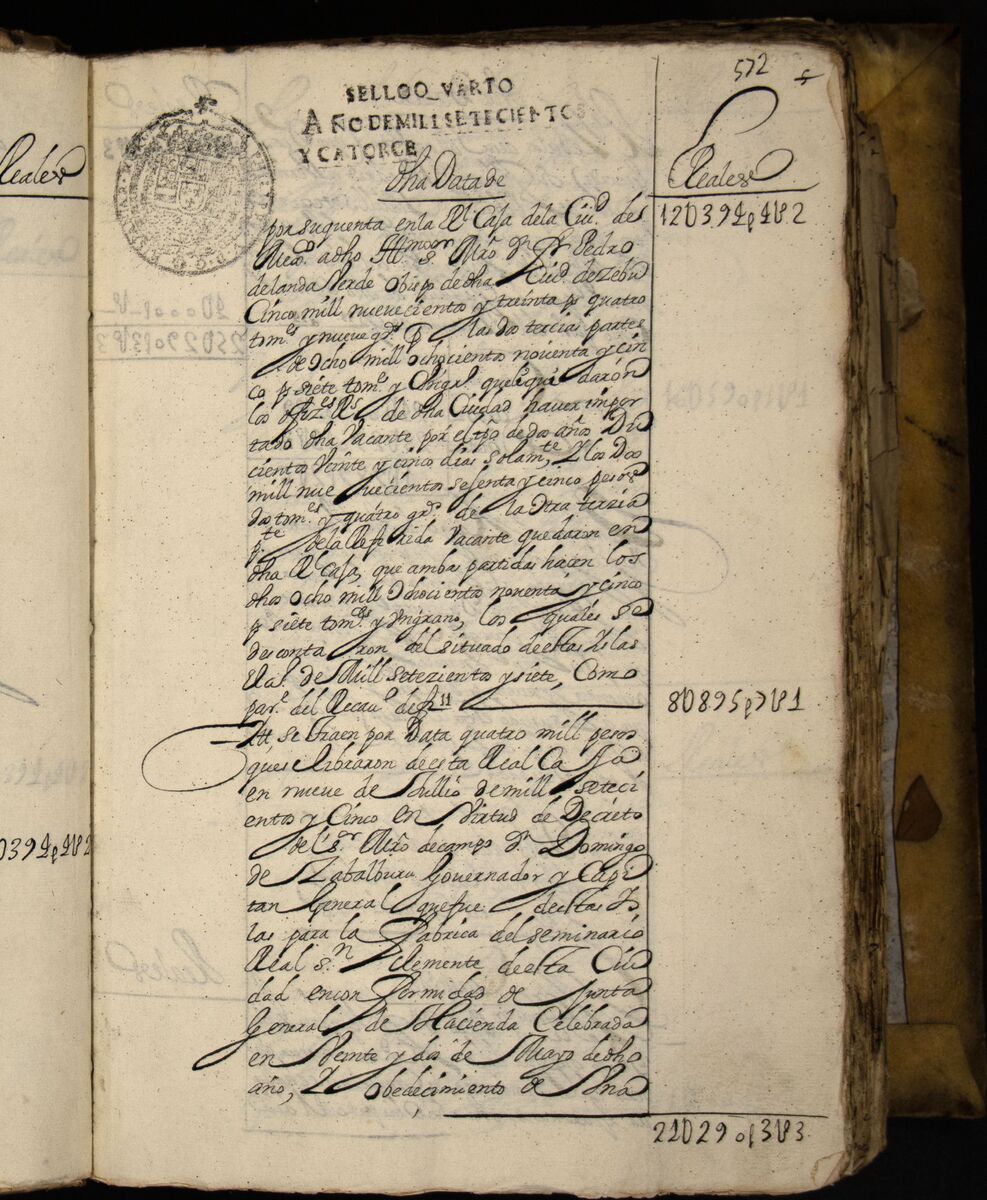 572
SELLO QVARTO
AÑO DE MILL SETECIENTOS
Y CATORCE
dha Data de
Reales
Reales
12U394p4U2
por su quenta en la Rl Casa de la Ciud de
Mexco a dho Illmo sor Mro Dn Fr Pedro
de landa Verde obispo de dha Ciud de Zebu
Cinco mill nuevecientos y treinta ps quatro
toms y nueve grs las dos tercias partes
de ocho mill ochocientos noventa y cin
co ps siete toms y Un gro que
los ofizes Rs de dha Ciudad haver impor
tado dha Vacante por el tpo de dos años Du
cientos Veinte y cinco dias solamte, Y los Dos
mill nue vecientos sesenta y cinco pesos
dos toms y quatro grs de la otra terzia
pte de la Referida Vacante quedaron en
dha Rl Casa, que ambas partidas hacen los
dhos ocho mill ochocientos noventa y cinco
ps siete toms y Un grano, los quales se
descontaron del situado de estas Yslas
del de Mill setezientos y siete, Como
pare del Recauo de f 11
8U895p7U1
Ytt, se traen por Data quatro mill pesos
que se libraron de esta Real Caxa
en nueve de Jullio de mill seteci
entos y Cinco en Virtud de Decreto
del sr Mro de campo Dn Domingo
de Zabalburu Governador y Capi
tan General que fue de estas Ys
las para la Fabrica del seminario
Real sn Clemente de esta Ciu
dad en conformidad de Junta
General de Hacienda Celebrada
en Veinte y dos de Mayo de dho
año, Y obedecimiento de Una
21U290p3U3
U394p4U2